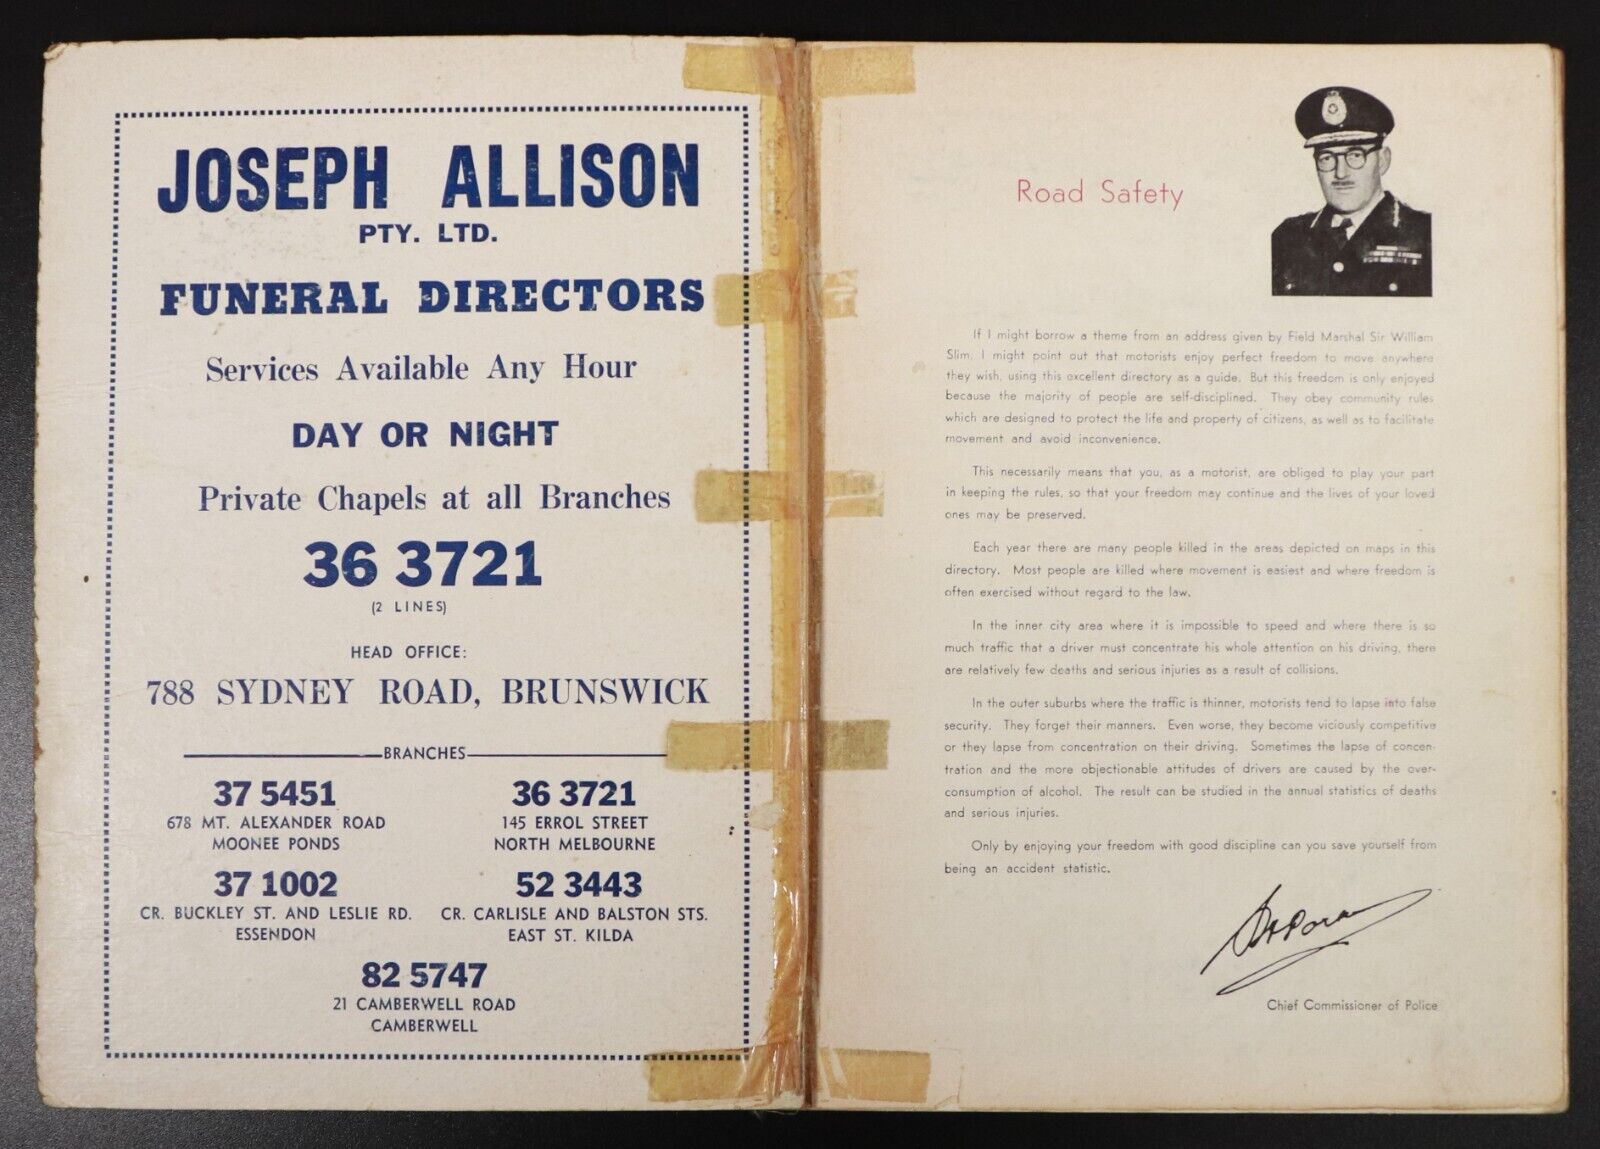 JOSEPH ALLISON
PTY. LTD.
FUNERAL DIRECTORS
Services Available Any Hour
DAY OR NIGHT
Private Chapels at all Branches
36 3721
(2 LINES)
HEAD OFFICE:
788 SYDNEY ROAD, BRUNSWICK
BRANCHES
37 5451
678 MT. ALEXANDER ROAD
MOONEE PONDS
36 3721
145 ERROL STREET
NORTH MELBOURNE
37 1002
CR. BUCKLEY ST. AND LESLIE RD.
ESSENDON
52 3443
CR. CARLISLE AND BALSTON STS.
EAST ST. KILDA
82 5747
21 CAMBERWELL ROAD
CAMBERWELL
Road Safety
If I might borrow a theme from an address given by Field Marshal Sir William
Slim, I might point out that motorists enjoy perfect freedom to move anywhere
they wish, using this excellent directory as a guide. But this freedom is only enjoyed
because the majority of people are self-disciplined. They obey community rules
which are designed to protect the life and property of citizens, as well as to facilitate
movement and avoid inconvenience.
This necessarily means that you, as a motorist, are obliged to play your part
in keeping the rules, so that your freedom may continue and the lives of your loved
ones may be preserved.
Each year there are many people killed in the areas depicted on maps in this
directory. Most people are killed where movement is easiest and where freedom is
often exercised without regard to the law.
In the inner city area where it is impossible to speed and where there is so
much traffic that a driver must concentrate his whole attention on his driving, there
are relatively few deaths and serious injuries as a result of collisions.
In the outer suburbs where the traffic is thinner, motorists tend to lapse into false
security. They forget their manners. Even worse, they become viciously competitive
or they lapse from concentration on their driving. Sometimes the lapse of concen-
tration and the more objectionable attitudes of drivers are caused by the over-
consumption of alcohol. The result can be studied in the annual statistics of deaths
and serious injuries.
Only by enjoying your freedom with good discipline can you save yourself from
being an accident statistic.
Chief Commissioner of Police